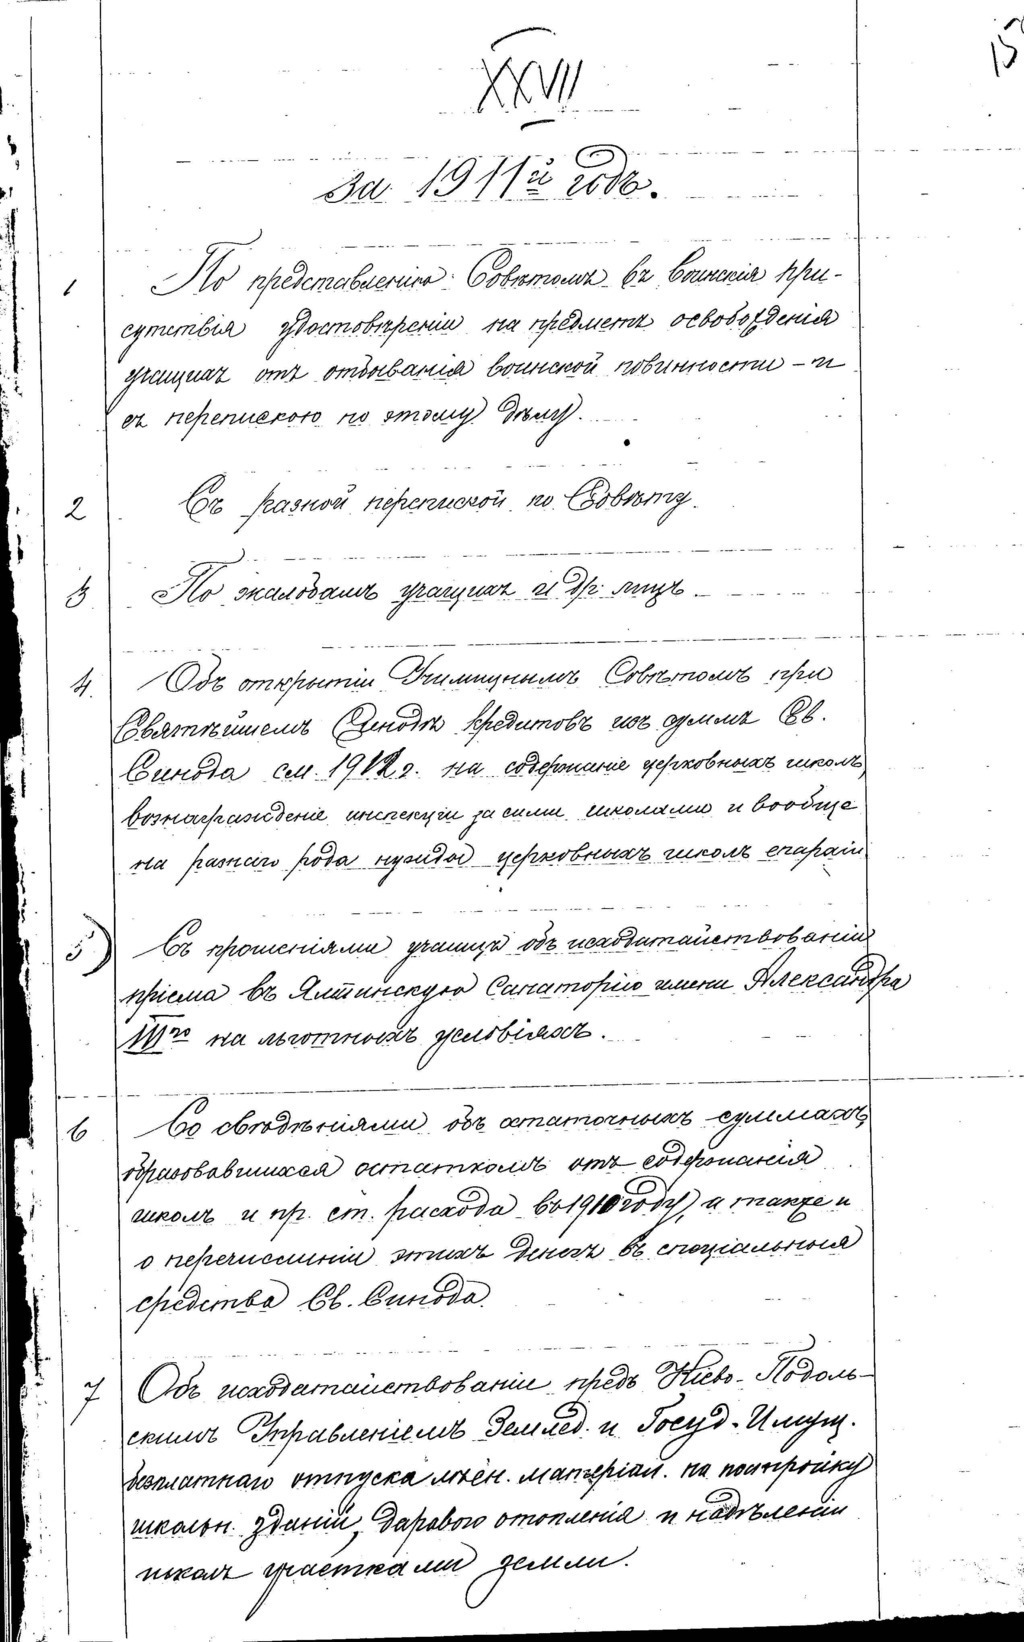 XXVII
за 1911й годъ.
1 По представленію Совѣтомъ въ воинскія при-
сутствія удостовѣреній на предметъ освобожденія
учащихъ отъ отбыванія воинской повинности – и
съ перепискою по этому дѣлу.
2 Съ разной перепиской по Совѣту.
3 По жалобамъ учащихъ и др. лицъ
4. Объ открытіи Училищнымъ Совѣтомъ при
Святѣйшемъ Синодѣ кредитовъ изъ суммъ Св.
Синода см. 1912 г. на содержаніе церковныхъ школъ,
вознагражденіе инспекціи за сими школами и вообще
на разнаго рода нужды церковныхъ школъ епархіи
5) Съ прошеніями учащихъ объ исходатайствованіи
пріема въ Ялтинскую Санаторію имени Александра
IIIго на льготныхъ условіяхъ.
6 Со свѣдѣніями объ остаточныхъ суммахъ,
образовавшихся остаткомъ отъ содержанія
школъ и пр. ст. расхода въ 1910 году, а также и
о перечисленіи этихъ денегъ въ спеціальныя
средства Св. Синода.
7 Объ исходатайствованіи предъ Кіево-Подоль-
скимъ Управленіемъ Землед. и Госуд. Имущ.
безплатнаго отпуска лѣсн. матеріал. на постройку
школьн. зданій, дарового отопленія и надѣленіи
школъ участками земли.